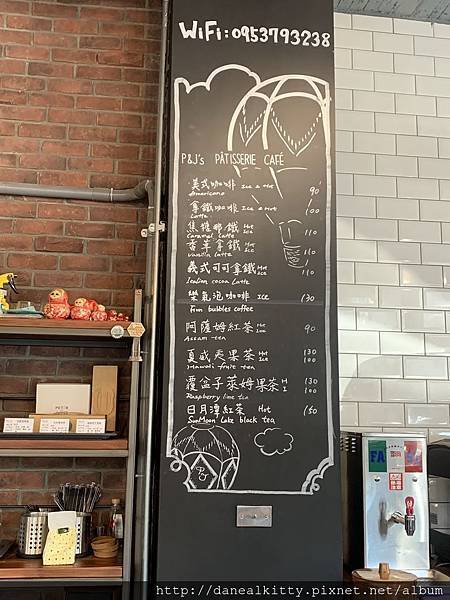 WiFi:0953793238
P&J's PÂTISSERIE CAFÉ
美式咖啡 Ice & Hot 90
Americano
拿鐵咖啡 Ice & Hot 100
Latte
焦糖那鐵 Hot Ice 110
Caramel Latte
香草拿鐵 Hot Ice 110
Vanilla Latte
義式可可拿鐵 Hot Ice 110
Italian cocoa Latte
樂氣泡咖啡 ICE 130
Fun bubbles coffee
阿薩姆紅茶 Hot Ice 90
Assam tea
夏威夷果茶 Hot Ice 130 100
Hawaii fruit tea
覆盆子萊姆果茶 H I 130 100
Raspberry lime tea
日月潭紅茶 Hot 150
SunMoon Lake black tea
P&J
http://danealkitty.pixnet.net/album